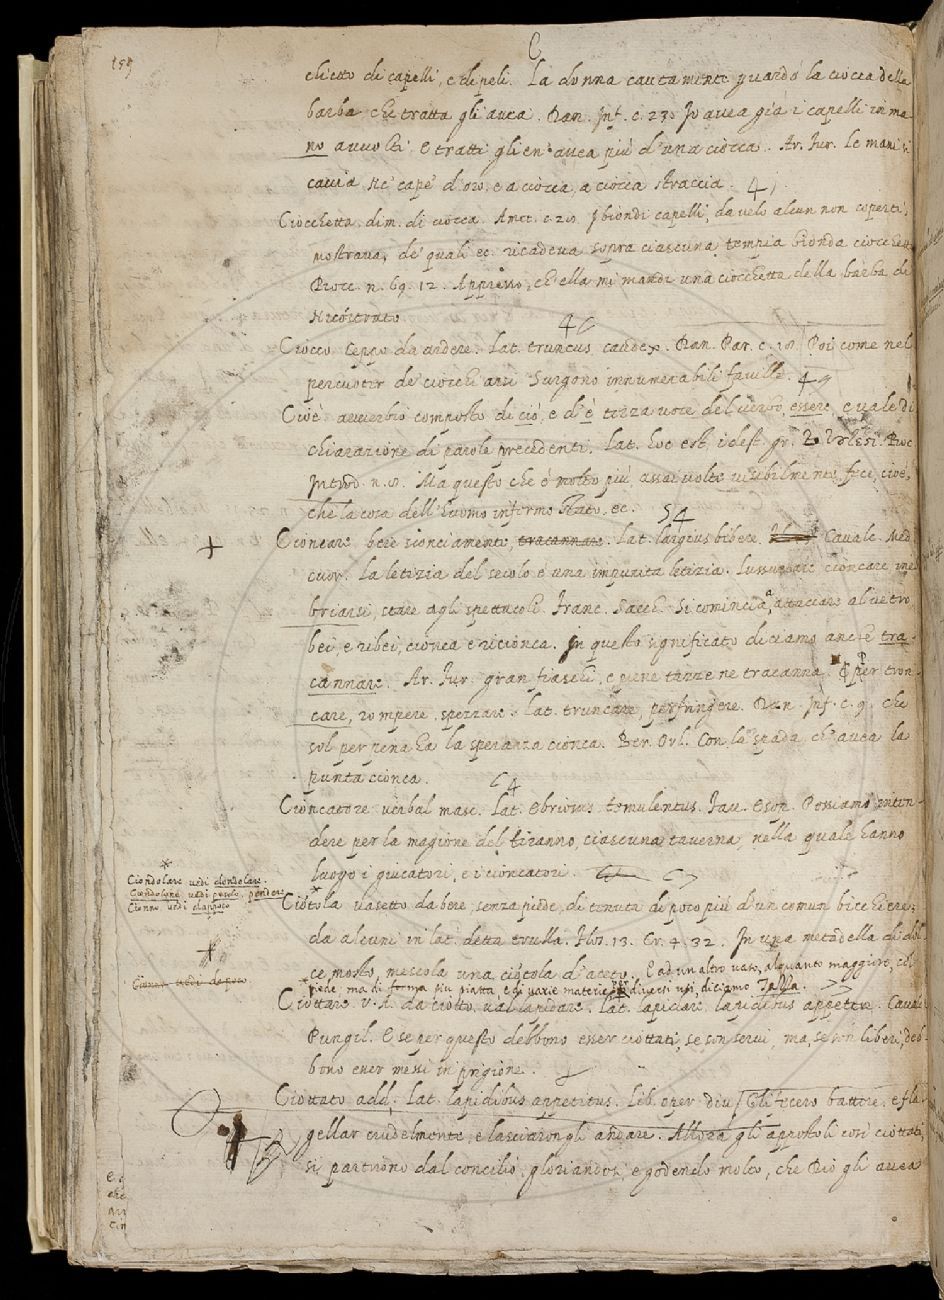 159
C
chietto di capelli, e di peli. La donna cautamente guardò la ciocca della
barba che tratta gli avea. Dan. Inf. c. 23. Io avea già i capelli in ma
no avvolti, e tratti glien'avea più d'una ciocca. Ar. Fur. Le mani si
caccia ne' cape' d'oro, e a ciocca a ciocca straccia.
Ciocchetta. dim. di ciocca. Amet. c. 20. I biondi capelli, da velo alcun non coperti,
mostrava, de' quali ec. ricadeva sopra ciascuna tempia bionda ciocchetta
Bocc. n. 69. 12. Appresso, ch'ella mi mandi una ciocchetta della barba di
Nicostrato
Ciocco ceppo da ardere. Lat. truncus, caudex. Dan. Par. c. 18. Poi come nel
percuoter de' ciocchi arsi Surgono innumerabili faville.
Cioè avverbio composto di ciò, e d'è terza voce del verbo, essere, e vale di
chiarazione di parole precedenti. Lat. hoc est, idest. gr. Bocc.
Introd. n. 8. Ma questo che è molto più, assai volte visibilmente fece, cioè,
che la cosa dell'huomo infermo stato, ec.
Cioncare bere sconciamente, tracannare. Lat. largius bibere. Cavalc. Med.
cuor. La letizia del secolo è una impurita letizia. Lussuriare cioncare ine
briarsi, stare agli spettacoli. Franc. Sacch. Si comincia a attaccare al vetro
bei, e ribei, cionca e ricionca. In questo significato diciamo anche tra
cannare. Ar. Fur. gran fiaschi, e piene tazze ne tracanna. per tron
care, rompere, spezzare. Lat. truncare, perfringere. Dan. Inf. c. 9. che
sol per pena ha la speranza cionca. Ber. Orl. Con la spada, ch'avea la
punta cionca.
Cioncatore verbal masc. Lat. ebriosus temulentus. Fav. Esop. Possiamo inten
dere per la magione del tiranno, ciascuna taverna, nella quale hanno
luogo i giucatori, e i cioncatori.
Ciondolare vedi dondolare.
Ciondolone vedi penzolo, pendere
Cionno vedi dappoco
Ciotola vasetto da bere, senza piede, di tenuta di poco più d'un comun bicchiere;
da alcuni in lat. detta trulla. Cr. 4. 32. In una metadella di dol
ce mosto, mescola una ciotola d'aceto. E ad un altro vaso, alquanto maggiore, col
piede, ma di forma più piatta, e di varie materie per diversi usi, diciamo Tazza.
Cionno vedi dapoco
Ciottare V. A. da ciotto, val lapidare. Lat. lapidare lapidibus appetere. Cavalc.
Pungil. E se per questo debbono esser ciottati, se son servi, ma, se son liberi, deb
bono esser messi in prigione.
Ciottato add. Lat. lapidibus appetitus. Lib. oper. div. Gli fecero battere, e fla
gellar crudelmente, e lasciarongli andare. Allora gli appostoli così ciottati,
si partirono dal concilio, gloriandosi, e godendo molto, che Dio gli avea